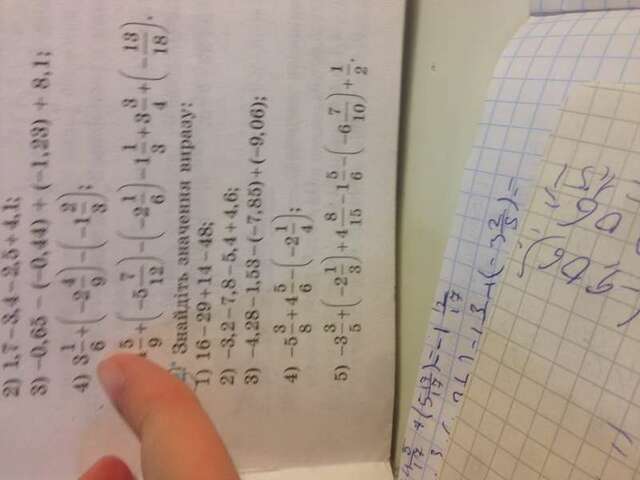 2) 1,7−3,4−2,5+4,1;
3) −0,65 − (−0,44) + (−1,23) + 8,1;
4) 3 1/6 + (−2 4/9) − (−1 2/3);
5/9 + (−5 7/12) − (−2 1/6) − 1 1/3 + 3 3/4 + (−13/18).
Знайдіть значення виразу:
1) 16−29+14−48;
2) −3,2−7,8−5,4+4,6;
3) −4,28−1,53−(−7,85)+(−9,06);
4) −5 3/8 + 4 5/6 − (−2 1/4);
5) −3 3/5 + (−2 1/3) + 4 8/15 − 1 5/6 − (−6 7/10) + 1/2.
(−3 2/5) =